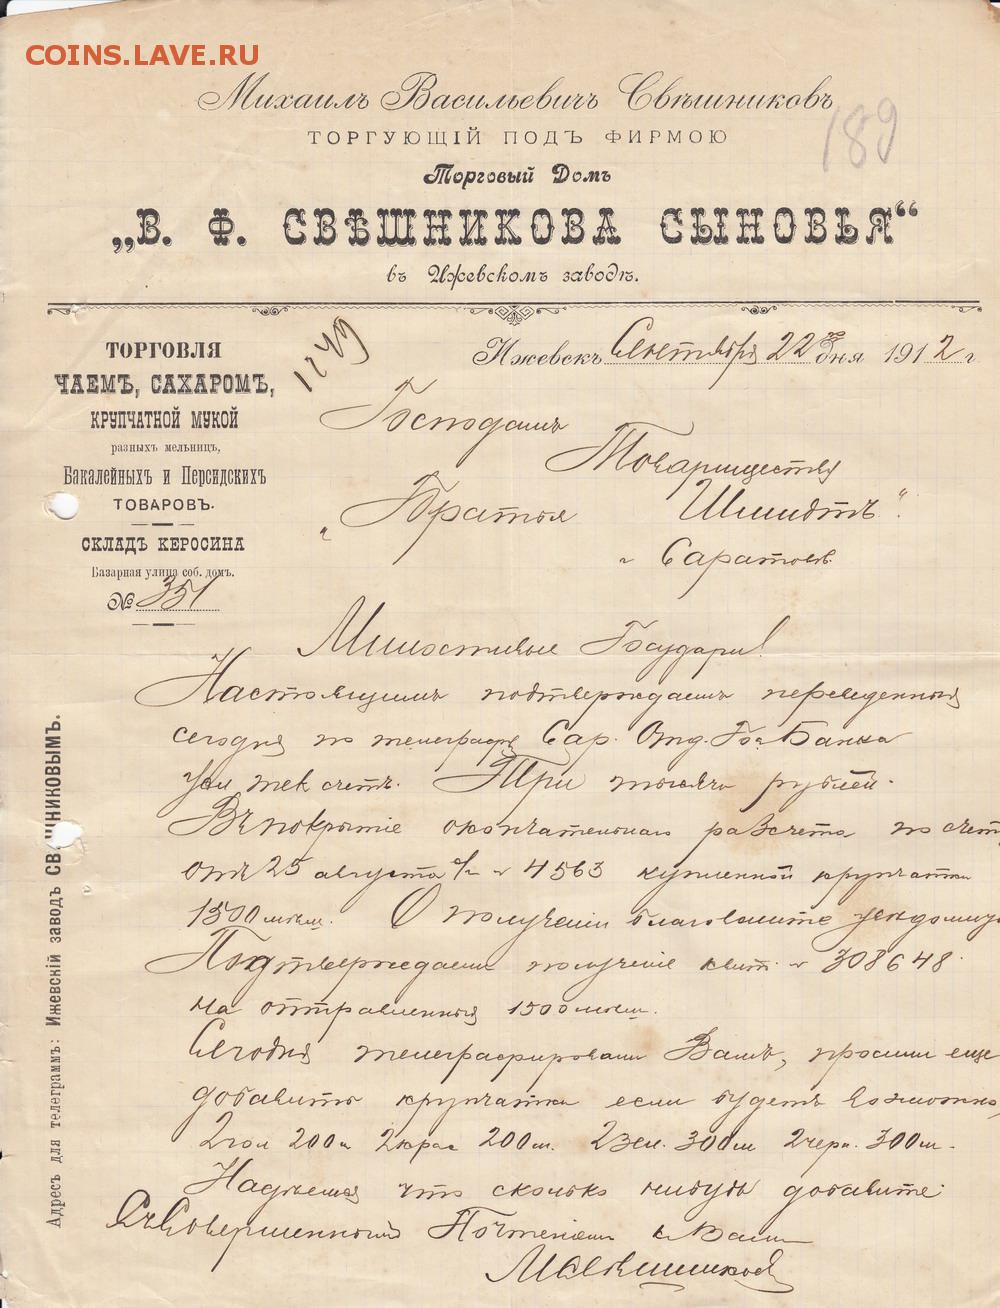 COINS.LAVE.RU
Михаилъ Васильевичъ Свѣшниковъ
189
ТОРГУЮЩІЙ ПОДЪ ФИРМОЮ
Торговый Домъ
„В. Ф. СВѢШНИКОВА СЫНОВЬЯ“
въ Ижевскомъ заводѣ.
1249
Ижевскъ Сентября 22 дня 1912 г
ТОРГОВЛЯ
ЧАЕМЪ, САХАРОМЪ,
КРУПЧАТНОЙ МУКОЙ
разныхъ мельницъ,
Бакалейныхъ и Персидскихъ
ТОВАРОВЪ.
СКЛАДЪ КЕРОСИНА
Базарная улица соб. домъ.
№ 351
Господамъ
Товариществу
„Братья Шмидтъ“.
г Саратовъ
Милостивые Государи!
Настоящимъ подтверждаемъ переведенныя
сегодня по телеграфу Сар. Отд. Гос Банка
тек счетъ. Три тысячи рублей.
Въ покрытіе окончательнаго разсчета по счет
отъ 25 августа с/г № 4563 купленной крупчатки
1500 меш. О полученіи благоволите увѣдомить
Подтверждаемъ полученіе квит. № 308648.
на отправленныя 1500 меш.
Сегодня телеграфировали Вамъ, просили еще
добавить крупчатки если будетъ возможно,
2 гол 200 м 2 крас 200 м. 2 зел. 300 м 2 черн. 300 м.
Надѣемся что сколько нибудь добавите
Съ Совершеннымъ Почтеніемъ къ Вамъ
МСвѣшниковъ
Адресъ для телеграммъ: Ижевскій заводъ СВ ШНИКОВЫМЪ.